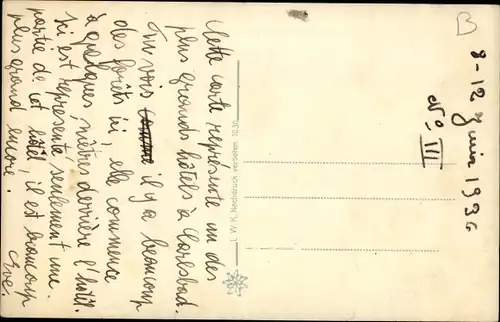 Cette carte représente un des
plus grands hôtels à Carlsbad.
Tu vois il y a beaucoup
des forêts ici, elle commence
à quelques mètres derrière l'hôtel.
Ici est représenté seulement une
partie de cet hôtel, il est beaucoup
plus grand encore.
Eve.
L. W. K. Nachdruck verboten. 1030
8-12 juin 1936
No. VII
B